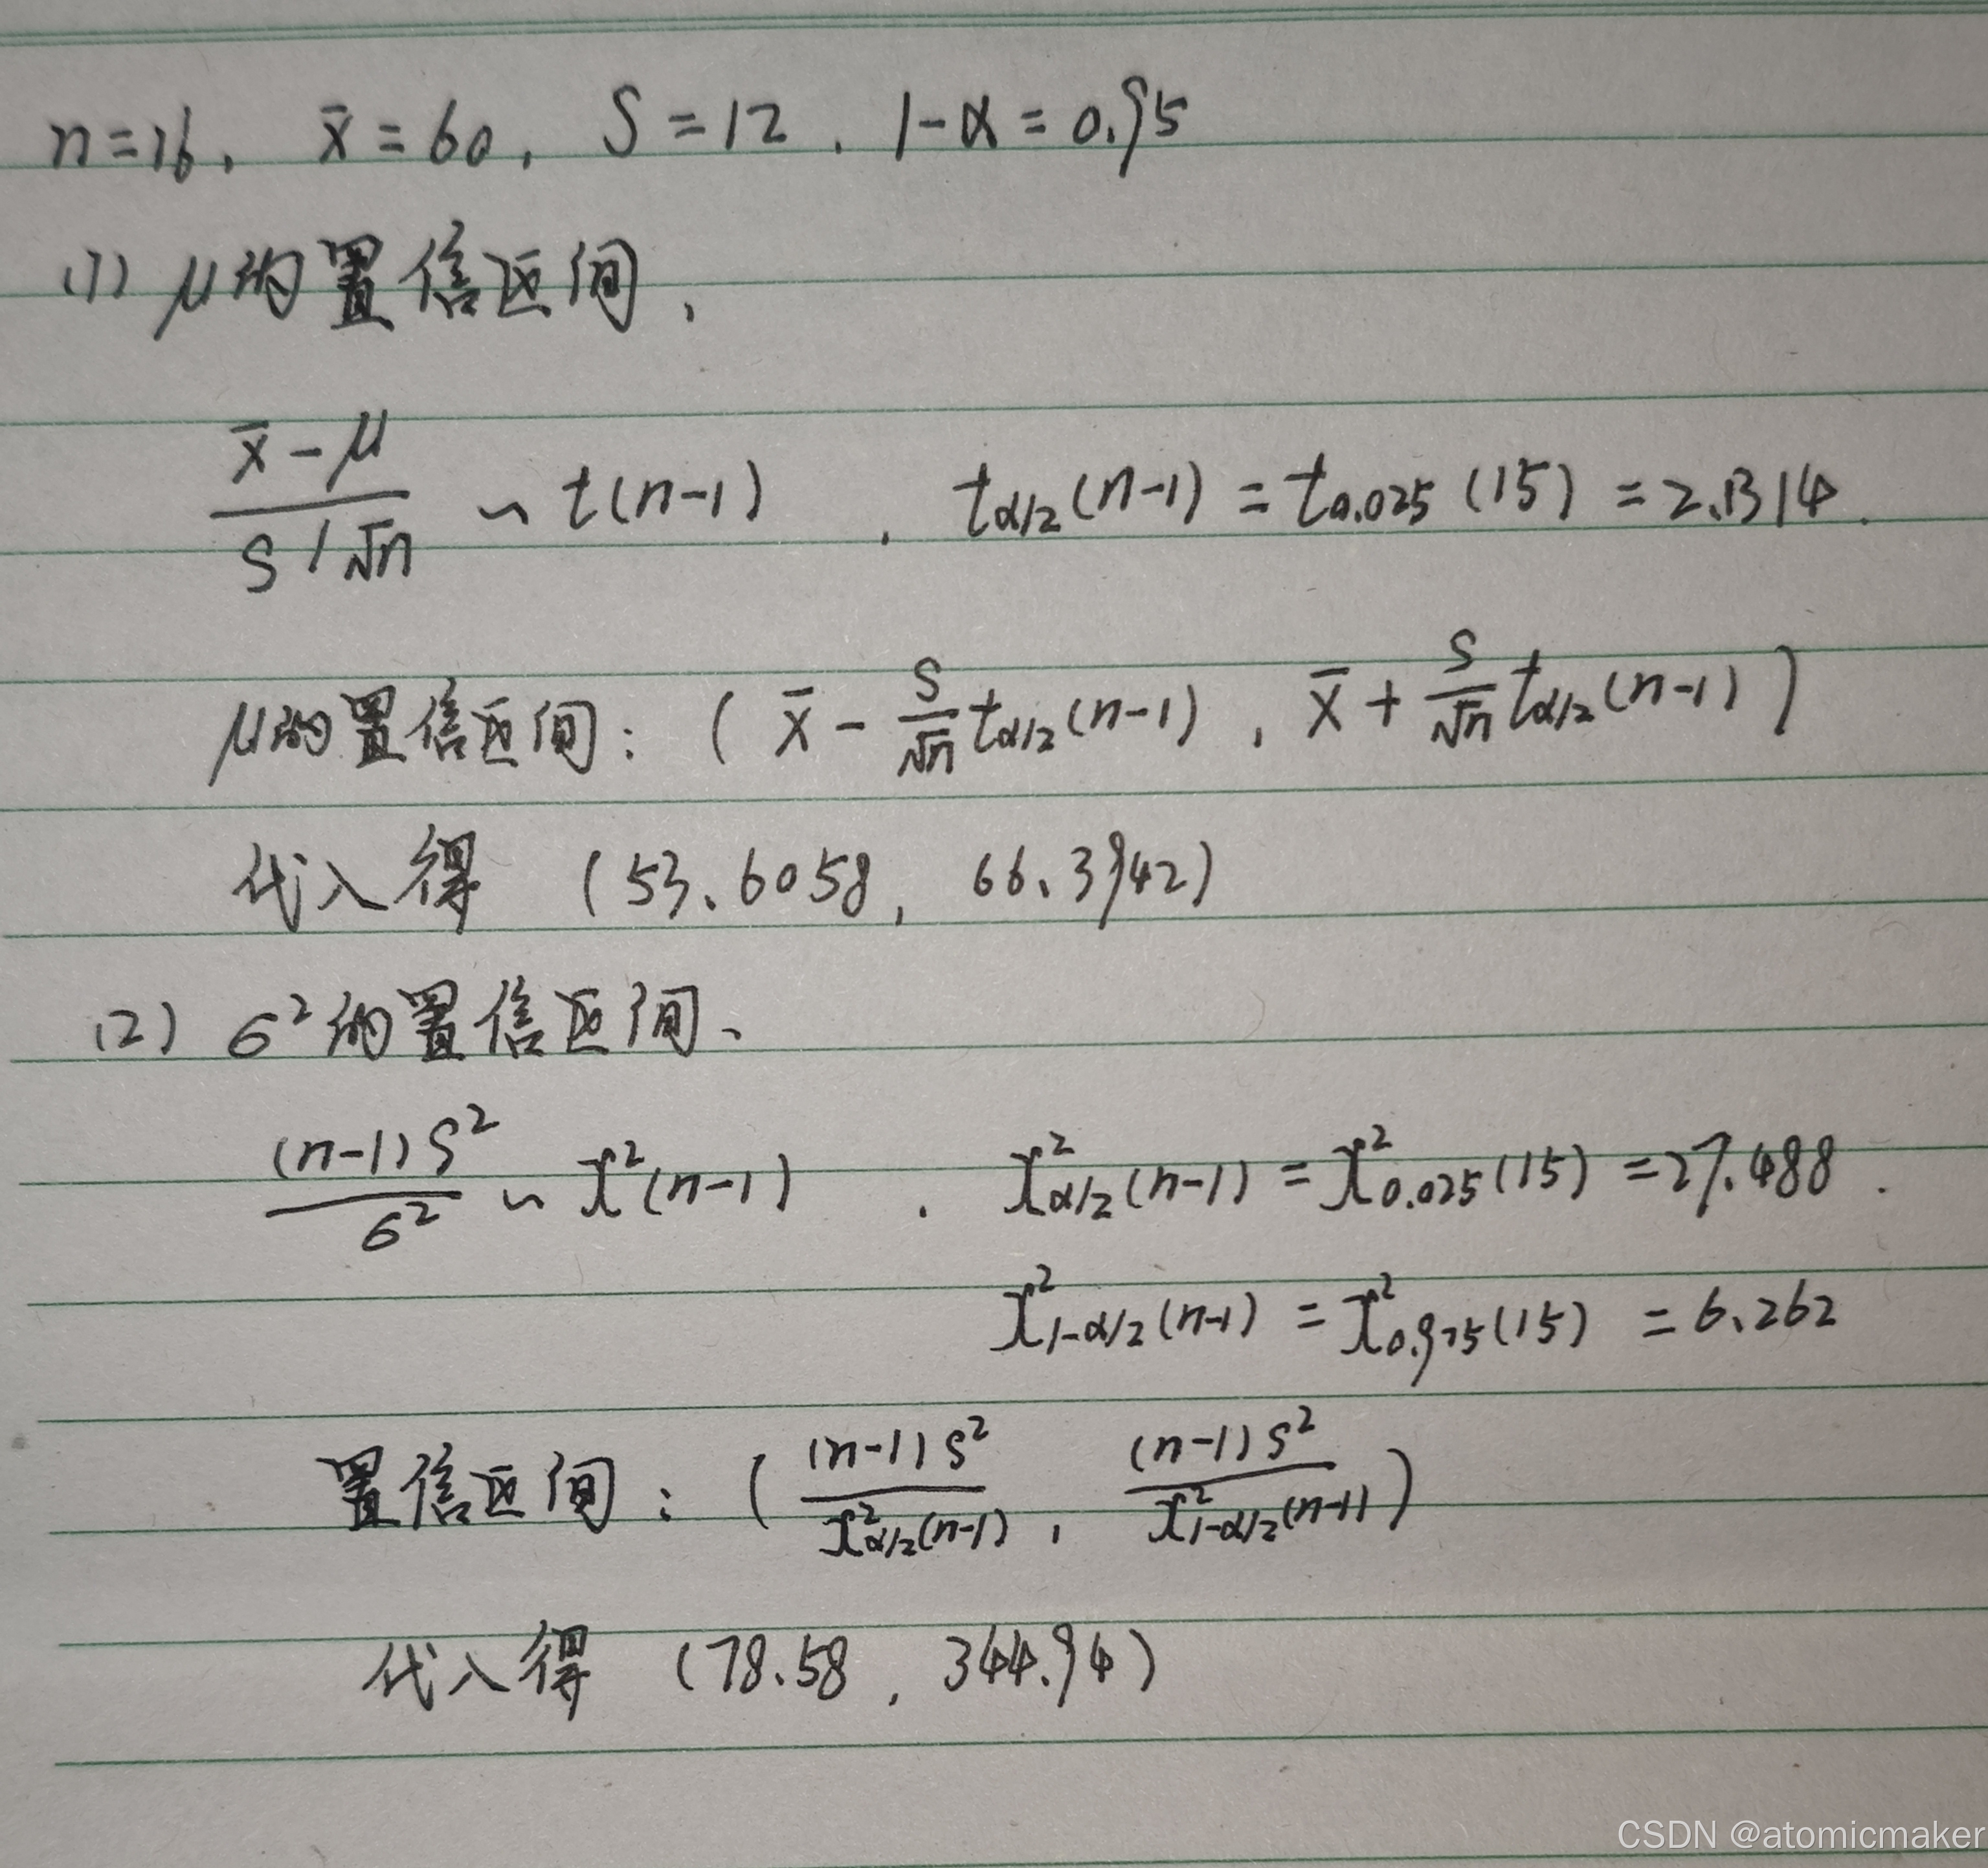 n=16, x̄=60, S=12, 1-α=0.95
(1) μ的置信区间,
(x̄-μ)/(S/√n) ~ t(n-1), t_{α/2}(n-1)=t_{0.025}(15)=2.1314.
μ的置信区间: (x̄ - S/√n t_{α/2}(n-1), x̄ + S/√n t_{α/2}(n-1))
代入得 (53.6058, 66.3942)
(2) σ²的置信区间、
(n-1)S²/σ² ~ χ²(n-1), χ²_{α/2}(n-1)=χ²_{0.025}(15)=27.488.
χ²_{1-α/2}(n-1)=χ²_{0.975}(15)=6.262
置信区间: ((n-1)S²/χ²_{α/2}(n-1), (n-1)S²/χ²_{1-α/2}(n-1))
代入得 (78.58, 344.94)
CSDN @atomicmaker